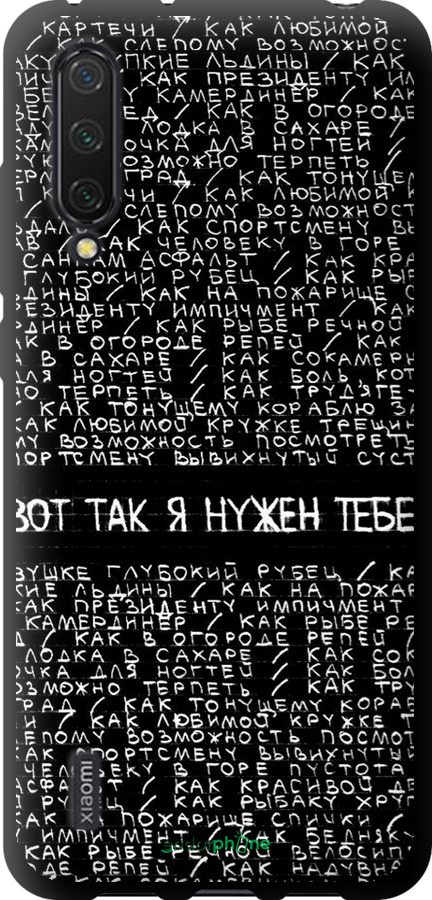 КАРТЕЧИ / КАК ЛЮБИМОЙ
СЛЕПОМУ ВОЗМОЖНОС
ПКИЕ ЛЬДИНЫ / КАК
КАК ПРЕЗИДЕНТУ ИМ
КАМЕРДИНЕР / КАК
ЕД / КАК В ОГОРОДЕ
ЛОДКА В САХАРЕ /
ОЧКА ДЛЯ НОГТЕЙ /
ВОЗМОЖНО ТЕРПЕТЬ /
ГРАД / КАК ТОНУЩЕМ
ЧИ / КАК ЛЮБИМОЙ К
СЛЕПОМУ ВОЗМОЖНОСТ
КАК СПОРТСМЕНУ ВЫ
КАК ЧЕЛОВЕКУ В ГОРЕ
САНКАМ АСФАЛЬТ / КАК КРА
ГЛУБОКИЙ РУБЕЦ / КАК РЫБ
ДИНЫ / КАК НА ПОЖАРИЩЕ С
ЕЗИДЕНТУ ИМПИЧМЕНТ / КАК
РДИНЕР / КАК РЫБЕ РЕЧНОЙ
К В ОГОРОДЕ РЕПЕЙ / КАК
В САХАРЕ / КАК СОКАМЕРН
ЛЯ НОГТЕЙ / КАК БОЛЬ, КОТ
О ТЕРПЕТЬ / КАК ТРУДЯГЕ
КАК ТОНУЩЕМУ КОРАБЛЮ ЗА
КАК ЛЮБИМОЙ КРУЖКЕ ТРЕЩИН
МУ ВОЗМОЖНОСТЬ ПОСМОТРЕТЬ
ПОРТСМЕНУ ВЫВИХНУТЫЙ СУСТ
ВОТ ТАК Я НУЖЕН ТЕБЕ
ВУШКЕ ГЛУБОКИЙ РУБЕЦ / КА
КИЕ ЛЬДИНЫ / КАК НА ПОЖАР
КАК ПРЕЗИДЕНТУ ИМПИЧМЕНТ
КАМЕРДИНЕР / КАК РЫБЕ РЕ
Д / КАК В ОГОРОДЕ РЕПЕЙ /
ЛОДКА В САХАРЕ / КАК СОК
ОЧКА ДЛЯ НОГТЕЙ / КАК БОЛ
ОЗМОЖНО ТЕРПЕТЬ / КАК ТРУ
РАД / КАК ТОНУЩЕМУ КОРАБ
И / КАК ЛЮБИМОЙ КРУЖКЕ Т
ЕПОМУ ВОЗМОЖНОСТЬ ПОСМОТ
КАК СПОРТСМЕНУ ВЫВИХНУТЫЙ
ЧЕЛОВЕКУ В ГОРЕ ПУСТОТА
АСФАЛЬТ / КАК КРАСИВОЙ ДЕ
РУ / КАК РЫБАКУ ХРУП
ПОЖАРИЩЕ СПИЧКИ /
ИМПИЧМЕНТ / КАК БЕДНЯК
КАК РЫБЕ РЕЧНОЙ ВЕЛОСИП
ДЕ РЕПЕЙ / КАК НАДУВНА
xiaomi
endorphone